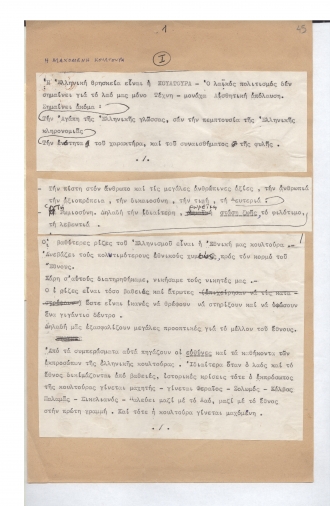 1
45
Η ΜΑΧΟΜΕΝΗ ΚΟΥΛΤΟΥΡΑ
I
Ἡ Ἑλληνική θρησκεία εἶναι ἡ ΚΟΥΛΤΟΥΡΑ - Ὁ λαϊκός πολιτισμός δέν
σημαίνει γιά τό λαό μας μόνο Τέχνη - μονάχα Αἰσθητική ἀπόλαυση.
Σημαίνει ἀκόμα:
Τήν Ἀγάπη τῆς Ἑλληνικῆς γλώσσας, σάν τήν πεμπτουσία τῆς Ἑλληνικῆς
κληρονομιᾶς
Τήν ἑνότητα τοῦ χαρακτήρα, καί τοῦ συναισθήματος τῆς φυλῆς.
./.
- τήν πίστη στόν ἄνθρωπο καί τίς μεγάλες ἀνθρώπινες ἀξίες, τήν ἀνθρωπιά
τήν ἀξιοπρέπεια, τήν δικαιοσύνη, τήν τιμή, τή Λευτεριά
Ρωμιοσύνη. Δηλαδή τήν ἰδιαίτερη, στάση ζωῆς τό φιλότιμο,
τή λεβεντιά
Οἱ βαθύτερες ρίζες τοῦ Ἑλληνισμοῦ εἶναι ἡ Ἐθνική μας κουλτούρα.
Ἀναβλύζει τούς πολυτιμότερους ἐθνικούς χυμούς πρός τόν κορμό τοῦ
Ἔθνους.
Χάρη σ'αὐτούς διατηρηθήκαμε, νικήσαμε τούς νικητές μας.-
Ὁ ἱ ρίζες εἶναι τόσο βαθειές καί ἄθερτες
ὥστε εἶναι ἱκανές νά θρέψουν νά στηρίξουν καί νά ὑψώσουν
ἕνα γιγάντιο δέντρο.
Δηλαδή μᾶς ἐξασφαλίζουν μεγάλες προοπτικές γιά τό μέλλον τοῦ ἔθνους.
Ἀπό τά συμπεράσματα αὐτά πηγάζουν οἱ εὐθύνες καί τά καθήκοντα τῶν
ἐκπροσώπων τῆς ἑλληνικῆς κουλτούρας. Ἰδιαίτερα ὅταν ὁ λαός καί τό
ἔθνος δοκιμάζονται ἀπό βαθειές, ἱστορικές κρίσεις τότε ὁ ἐκπρόσωπος
τῆς κουλτούρας γίνεται μαχητής - γίνεται Φεραῖος - Σολωμός - Κάλβος
Παλαμᾶς - Σικελιανός - παλεύει μαζί μέ τό λαό, μαζί μέ τό ἔθνος
στήν πρώτη γραμμή. Καί τότε ἡ κουλτούρα γίνεται μαχόμενη.
./.